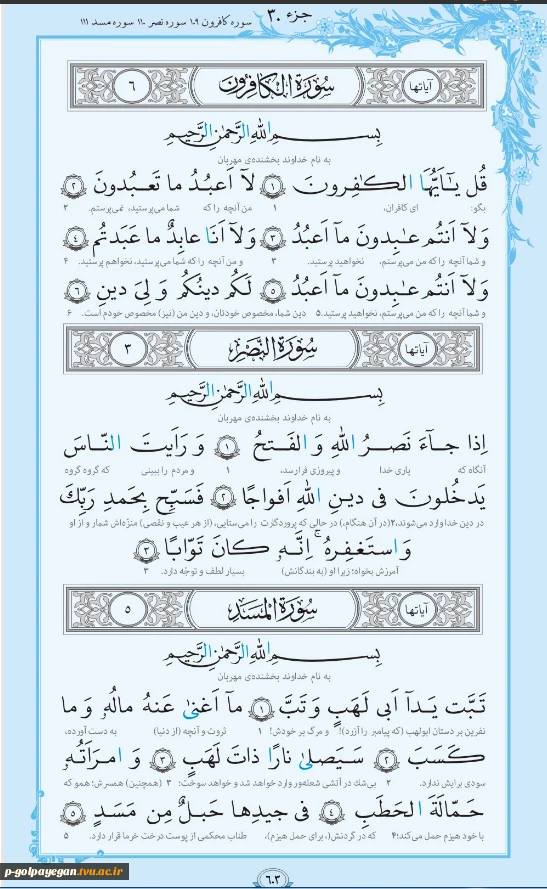 جزء ۳۰ سوره کافرون ۱۰۹ سوره نصر ۱۱۰ سوره مسد ۱۱۱
آیاتها سُورَةُ الكافِرون ۶
بِسمِ اللهِ الرَّحمٰنِ الرَّحيمِ
به نام خداوند بخشنده‌ی مهربان
قُل يـٰٓاَيُّهَا الكـٰفِرونَ ۱ لاۤ اَعبُدُ ما تَعبُدونَ ۲
بگو: ای کافران، ۱ من آنچه را که شما می‌پرستید، نمی‌پرستم. ۲
وَلاۤ اَنتُم عـٰبِدونَ ماۤ اَعبُدُ ۳ وَلاۤ اَنَا عابِدٌ ما عَبَدتُم ۴
و شما آنچه را که من می‌پرستم، نخواهید پرستید. ۳ و من آنچه را که شما می‌پرستید، نخواهم پرستید. ۴
وَلاۤ اَنتُم عـٰبِدونَ ماۤ اَعبُدُ ۵ لَكُم دينُكُم وَ لِىَ دينِ ۶
و شما آنچه را که من می‌پرستم، نخواهید پرستید. ۵ دین شما، مخصوص خودتان، و دین من (نیز) مخصوص خودم است. ۶
آیاتها سُورَةُ النَّصْرِ ۳
بِسمِ اللهِ الرَّحمٰنِ الرَّحيمِ
به نام خداوند بخشنده‌ی مهربان
اِذا جاۤءَ نَصـرُ اللهِ وَ الفَـتحُ ۱ وَ رَاَيتَ النّـاسَ
آنگاه که یاری خدا و پیروزی فرارسد، ۱ و مردم را ببینی که گروه گروه
يَدخُلونَ فى دينِ اللهِ اَفواجًا ۲ فَسَبِّح بِحَمدِ رَبِّكَ
در دین خدا وارد می‌شوند،۲(در آن هنگام،) در حالی که پروردگارت را می‌ستایی، (از هر عیب و نقصی) منزّه‌اش شمار و از او
وَ استَغفِرهُ ۚ اِنَّهٗ كانَ تَوّابًا ۳
آمرزش بخواه؛ زیرا او (به بندگانش) بسیار لطف و توجّه دارد. ۳
آیاتها سُورَةُ المَسَدِ ۵
بِسمِ اللهِ الرَّحمٰنِ الرَّحيمِ
به نام خداوند بخشنده‌ی مهربان
تَبَّت يَـداۤ اَبى لَهَبٍ وَ تَبَّ ۱ ماۤ اَغنىٰ عَنهُ مالُهٗ وَ ما
نفرین بر دستان ابولهب (که پیامبر را آزرد)! و مرگ بر خودش! ۱ ثروت و آنچه (از دنیا) به دست آورده،
كَسَبَ ۲ سَيَصلىٰ نارًا ذاتَ لَهَبٍ ۳ وَ امرَاَتُهٗ
سودی برایش ندارد. ۲ بی‌شک در آتشی شعله‌ور وارد خواهد شد و خواهد سوخت؛ ۳ (همچنین) همسرش؛ همو که
حَمّالَةَ الحَطَبِ ۴ فى جيدِها حَبلٌ مِن مَسَدٍ ۵
با خود هیزم حمل می‌کند؛۴ که در گردنش(، برای حمل هیزم)، طناب محکمی از پوست درخت خرما قرار دارد. ۵
۶۰۳
p-golpayegan.tvu.ac.ir